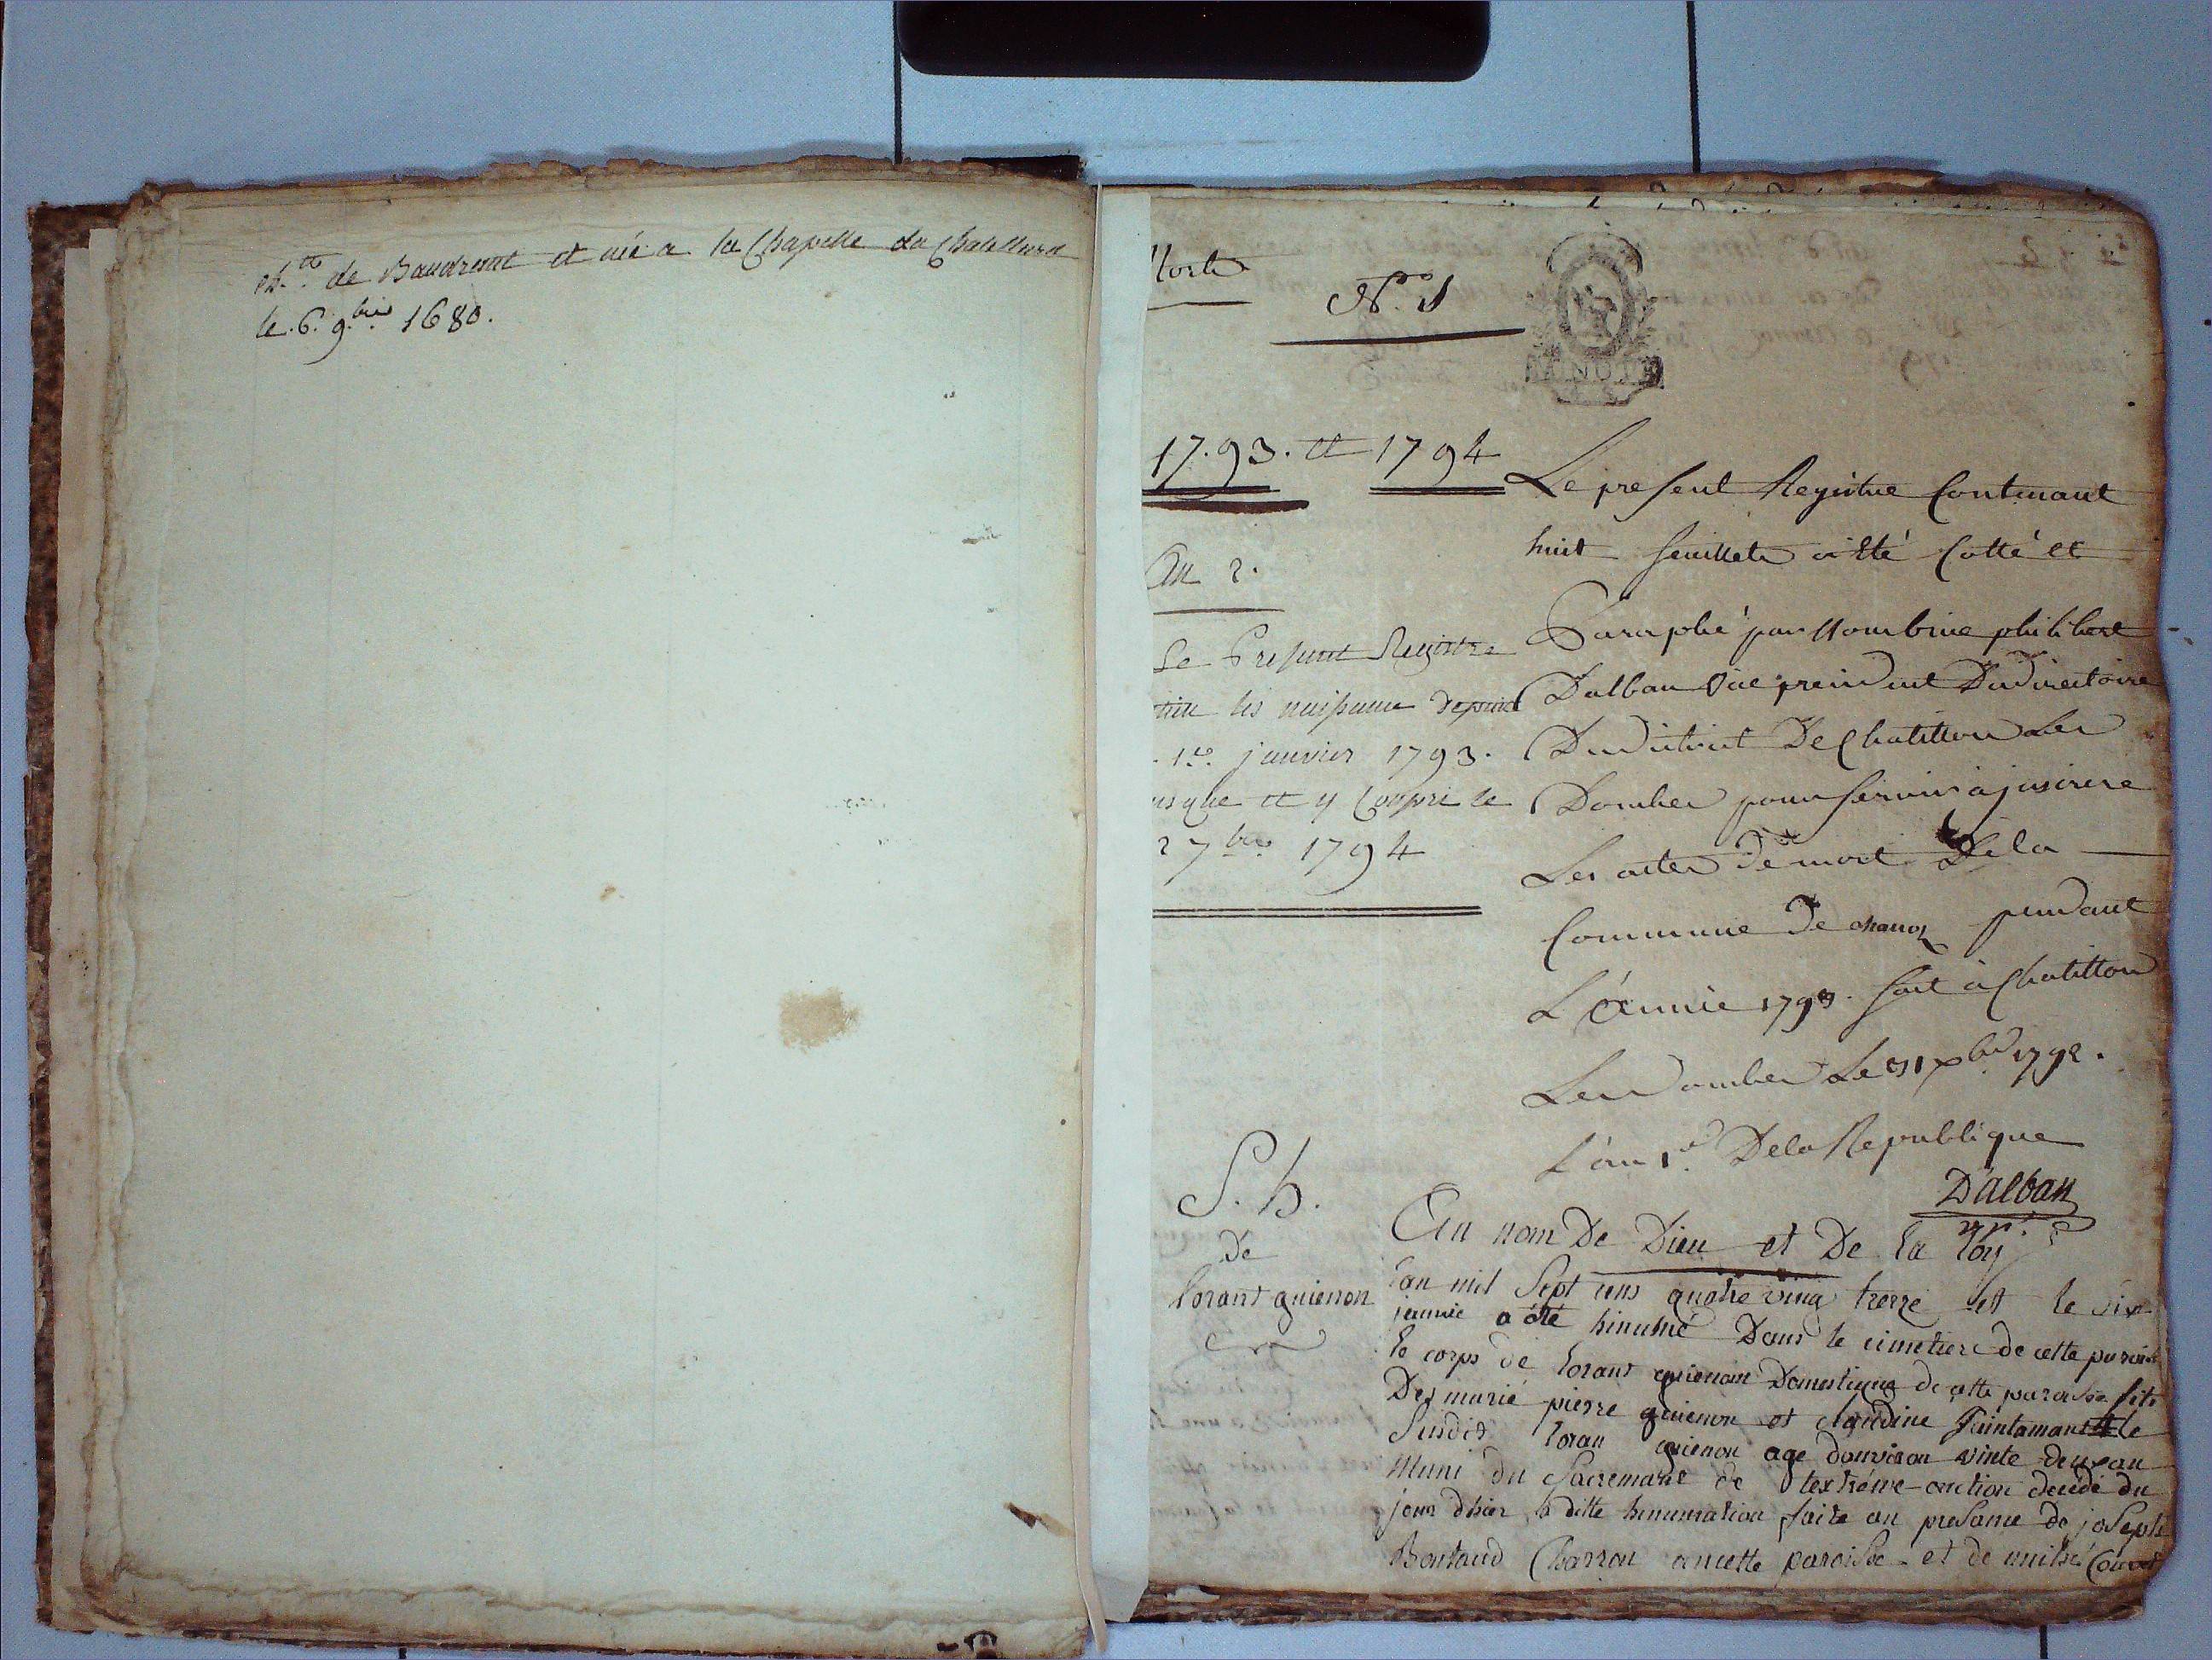 de Baudremt et née a la Chapelle du Chatellard
le 6. 9.bre 1680.
Morts
N.o 1
MINUTE
17.93. et 1794
An 2.
Le Present Registre
les naissance depuis
1er. janvier 1793.
usque et y Compri le
2 7bre 1794
Le present Registre Contenant
huit feuillets a été Cotté et
Paraphé par Nous philibert
Dalban Vice president Du Directoire
Du District De Chatillon Les
Dombes pour servir à jnscrire
Les actes De mort De la
Commune De chanoz pendant
L'année 1793. fait à Chatillon
Les Dombes Le 31 Xbre 1792.
L'an 1er. De la Republique
D'alban
vp.
S. h.
de
lorant guienon
Au nom De Dieu et De la loy
lan mil Sept cens quatre ving treize et le six
janvié a été hinumé Dans le cimetiere de cette paroisse
le corps de lorant guienon Domestique de cette paroisse fits
De marié pierre guienon et claudine Jaintamant le
Susdit loran guienon age danviron vinte deux an
Muni du Sacremant de lextréme-onction decédé du
jour dhier, la ditte hinumation faite an presance de joseph
Bontaud Charron an cette paroisse et de Couret